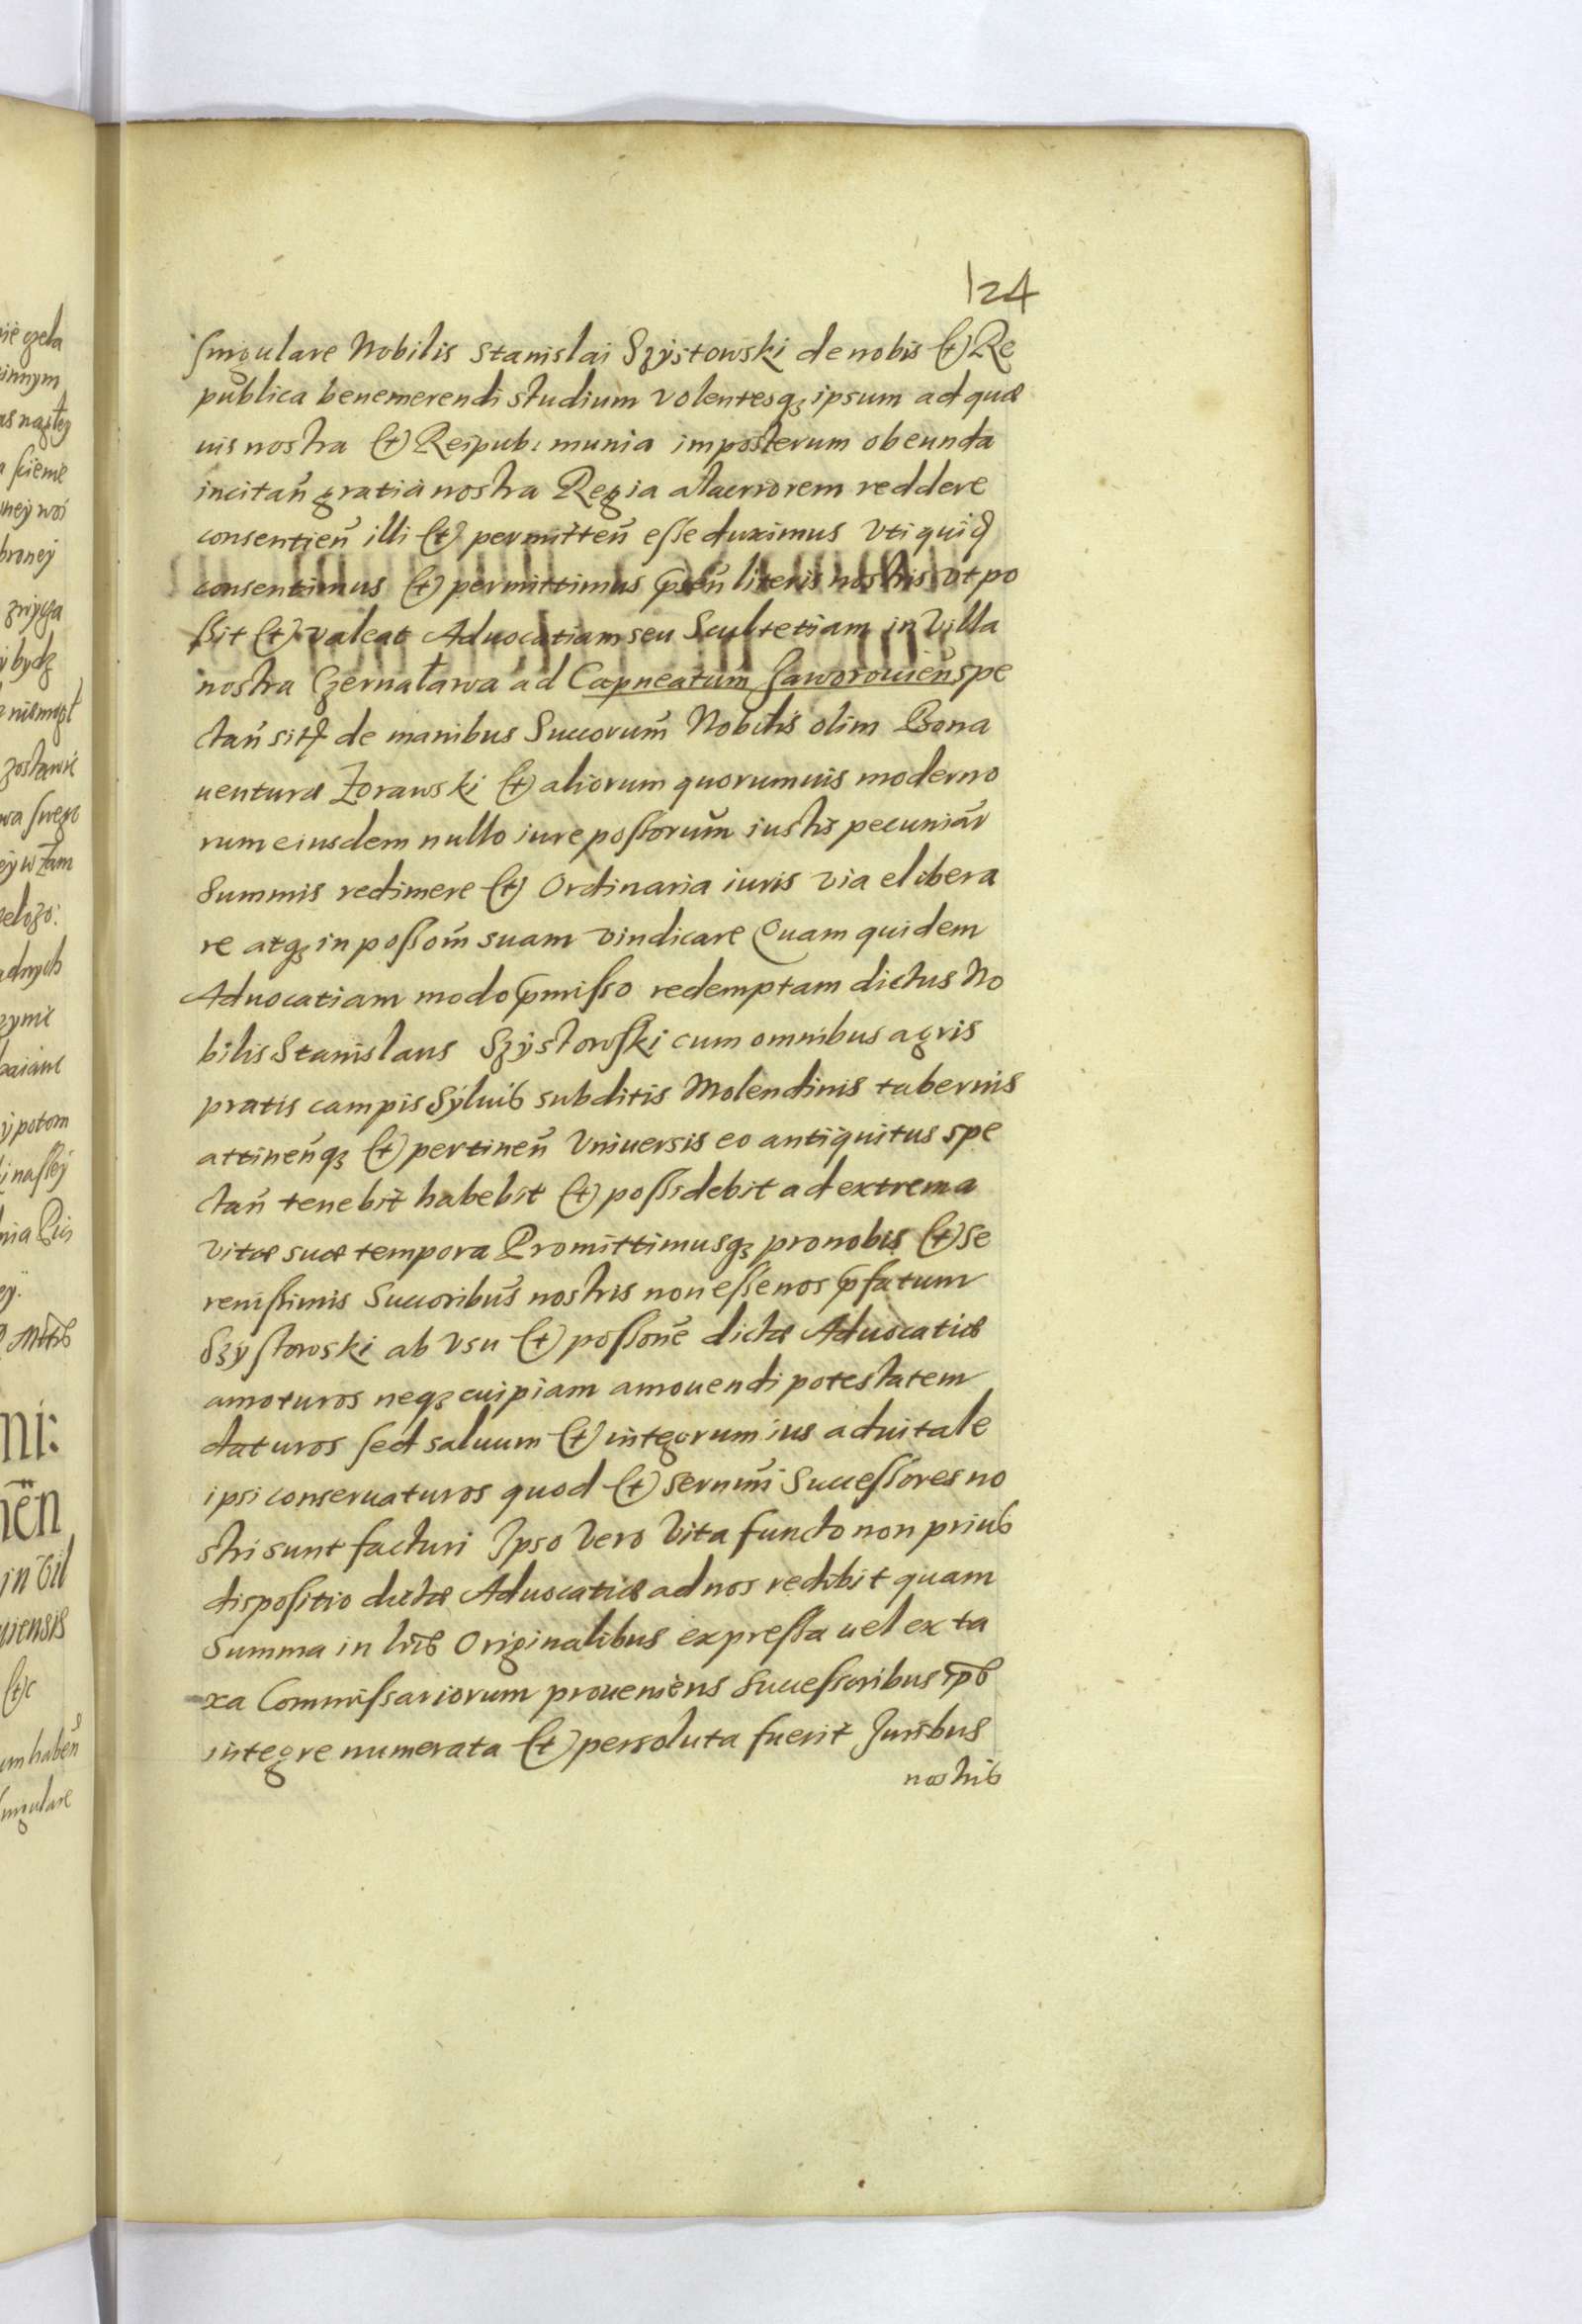 124
singulare Nobilis Stanislai Szystowski de nobis et Re
publica benemerendi studium volentesqȝ ipsum ad quæ
uis nostra et Reipub: munia imposterum obeunda
incitañ gratia nostra Regia alacriorem reddere
consentieñ illi et permitteñ esse duximus Vti quidē
consentimus et permittimus pñteñ literis nostris Vt po
ssit et valeat Aduocatiam seu Scultetiam in Villa
nostra Czernaława ad Capneatum Jaworouieñ spe
ctañ sitā de manibus Succorum̃ Nobilis olim Bona
uenturæ Zorawski et aliorum quorumuis moderno
rum eiusdem nullo iure possorum̃ iustis pecuniar̃
Summis redimere et Ordinaria iuris via elibera
re atqȝ in possom̃ suam vindicare Quam quidem
Aduocatiam modo p̄misso redemptam dictus No
bilis Stanislaus Szystowski cum omnibus agris
pratis campis Syluis subditis Molendinis tabernis
attineñqȝ et pertineñ Vniuersis eo antiquitus spe
ctañ tenebit habebit et possidebit ad extrema
vitæ suæ tempora Promittimusqȝ pro nobis et Se
renissimis Succoribus̃ nostris non esse nos p̄fatum
Szystowski ab vsu et possone̅ dictæ Aduocatiæ
amoturos neqȝ cuipiam amouendi potestatem
daturos sed saluum et integrum ius aduitale
ipsi conseruaturos quod et Sernmi̅ Successores no
stri sunt facturi Ipso Vero Vita functo non prius
dispositio dictæ Aduocatiæ ad nos redibit quam
Summa in lris̅ Originalibus expressa uel ex ta
xa Commissariorum proueniens Successoribus ips̅
integre numerata et persoluta fuerit Juribus
nostris